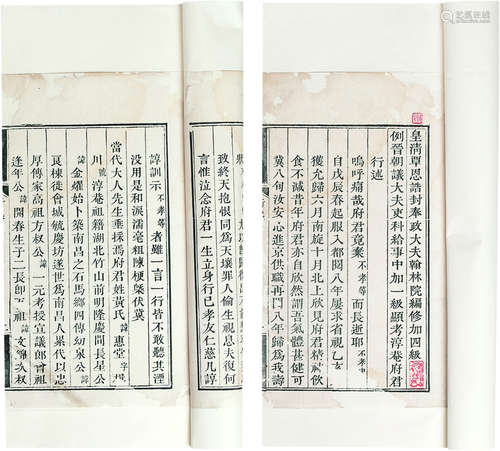 皇清覃恩誥封奉政大夫翰林院編修加四級
例晉朝議大夫吏科給事中加一級顯考淳庵府君
行述
嗚呼痛哉府君竟棄不孝等而長逝耶不孝中
自戊辰春起服入都閱八年屢求省視乙
獲允歸六月南旋十月北上欣見府君精神飲
食不減昔年府君亦自欣然謂吾氣體甚健可
冀八旬汝安心進京供職再閱八年歸為我壽
致終天抱恨同為天壤罪人偷生視息夫復何
言惟泣念府君一生立身行己孝友仁慈几諄
諄訓示不孝等者雖一言一行皆不敢聽其湮
沒用是和淚濡毫粗陳梗槩伏冀
當代大人先生垂採焉府君姓黃氏諱惠堂字楫
川號淳庵祖籍湖北竹山前明隆慶間長星公
諱金燿始卜築南昌之石馬鄉四傳幼泉公諱
良棟徙會城毓慶坊遂世為南昌人累代以忠
厚傳家高祖方叔公諱一元考授宣議郎曾祖
逢年公諱開春生子二長即祖文錦